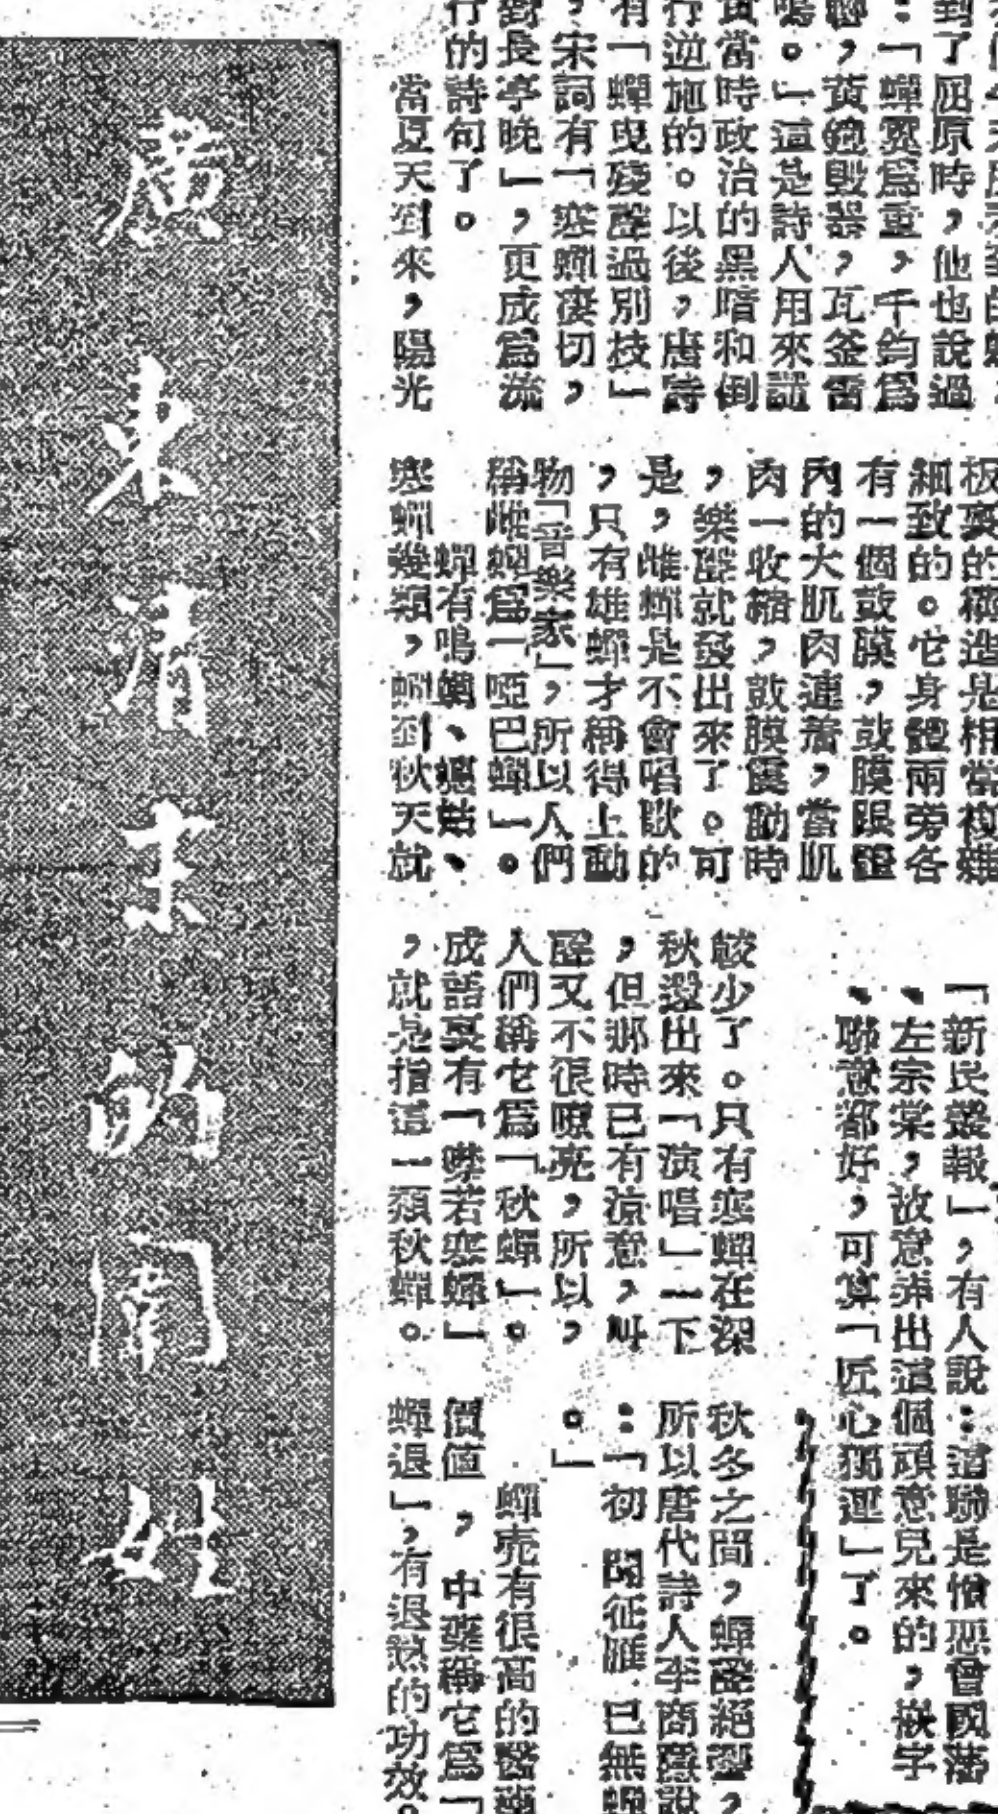 到了屈原時，他也說過
：「蟬翼爲重，千鈞爲
，黃鐘毀棄，瓦釜雷
鳴。」這是詩人用來
當時政治的黑暗和倒
行逆施的。以後，唐詩
有「蟬曳殘聲過別枝」
，宋詞有「寒蟬淒切，
對長亭晚」，更成爲流
行的詩句了。
當夏天到來，陽光
構造是相當複雜
細致的。它身體兩旁各
有一個鼓膜，鼓膜跟體
內的大肌肉連着，當肌
肉一收縮，鼓膜震動時
，樂聲就發出來了。可
是，雌蟬是不會唱歌的
，只有雄蟬才稱得上動
物「音樂家」，所以人們
稱雌蟬爲「啞巴蟬」。
蟬有鳴蜩、蟪蛄、
寒蟬幾類，蟬到秋天就
較少了。只有寒蟬在深
秋還出來「演唱」一下
，但那時已有涼意，叫
聲又不很嘹亮，所以，
人們稱它爲「秋蟬」。
成語裏有「噤若寒蟬」
，就是指這一類秋蟬。
「新民叢報」，有人說：這聯是憎惡曾國藩
、左宗棠，故意弄出這個頑意兒來的，嵌字
、聯意都好，可算「匠心獨運」了。
秋冬之間，蟬聲絕響，
所以唐代詩人李商隱說
：「初聞征雁已無蟬
。」
蟬壳有很高的醫藥
價值，中藥稱它爲「
蟬退」，有退熱的功效。
廣東清末的闈姓